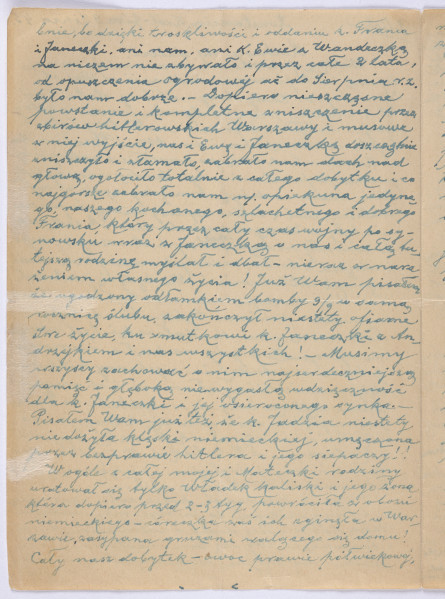 Enie, bo dzięki troskliwości i oddaniu k. Frania
i Janeczki, ani nam, ani k. Ewie a Wandeczką
na niczem nie zbywało i przez całe 2 lata,
od opuszczenia ogrodowej aż do Sierpnia r.z.
było nam dobrze. – Dopiero nieszczęsne
powstanie i kompletne zniszczenie przez
zbirów hitlerowskich Warszawy i musowe
z niej wyjście, nas i Ewę i Janeczkę doszczętnie
zniszczyło i złamało, zabrało nam dach nad
głową, ogołociło totalnie z całego dobytku i co
najgorsze zabrało nam opiekuna jedyne
go, naszego kochanego, szlachetnego i dobrego
Frania, który przez cały czas wojny po sy-
nowsku wraz z Janeczką o nas i całą tu-
tejszą rodzinę myślał i dbał – nieraz z nara
żeniem własnego życia! Już Wam pisałem
że ugodzony odłamkiem bomby 3/9 w samą
rocznicę ślubu, zakończył niestety, ofiarne
swe życie, ku smutkowi k. Janeczki z An-
drzejkiem i nas wszystkich! – Musimy
wszyscy zachować o nim najserdeczniejszą
pamięć i głęboką niewygasłą wdzięczność
dla k. Janeczki i jej osieroconego synka. –
Pisałem Wam już też że k. Jadzia niestety
nie dożyła klęski niemieckiej, umęczona
przez bezprawie hitlera i jego siepaczy!!
W ogóle z całej mojej i Mateczki rodziny
uratował się tylko Władek Kaliski i jego żona
która dopiero przed 2-3 tyg. powróciła z obozu
niemieckiego – córeczka zaś ich zginęła w War
szawie, zasypana gruzami walącego się domu!
Cały nasz dobytek – owoc prawie półwiekowej,